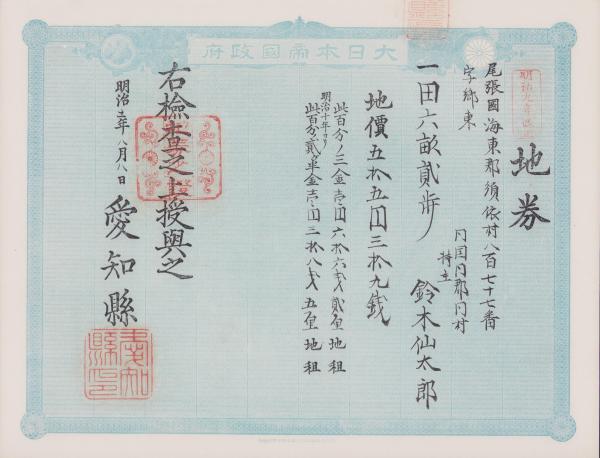 大日本帝國政府
地券
尾張國海東郡須依村八百七十七番
字郷東
一田六畝貳歩
同国同郡同村
持主
鈴木仙太郎
地價五拾五円三拾九銭
此百分ノ三金壱円六拾六銭貳厘 地租
明治十年ヨリ
此百分貳半金壱円三拾八銭五厘 地租
右検査之上授與之
明治十二年八月八日
愛知縣
愛知縣印